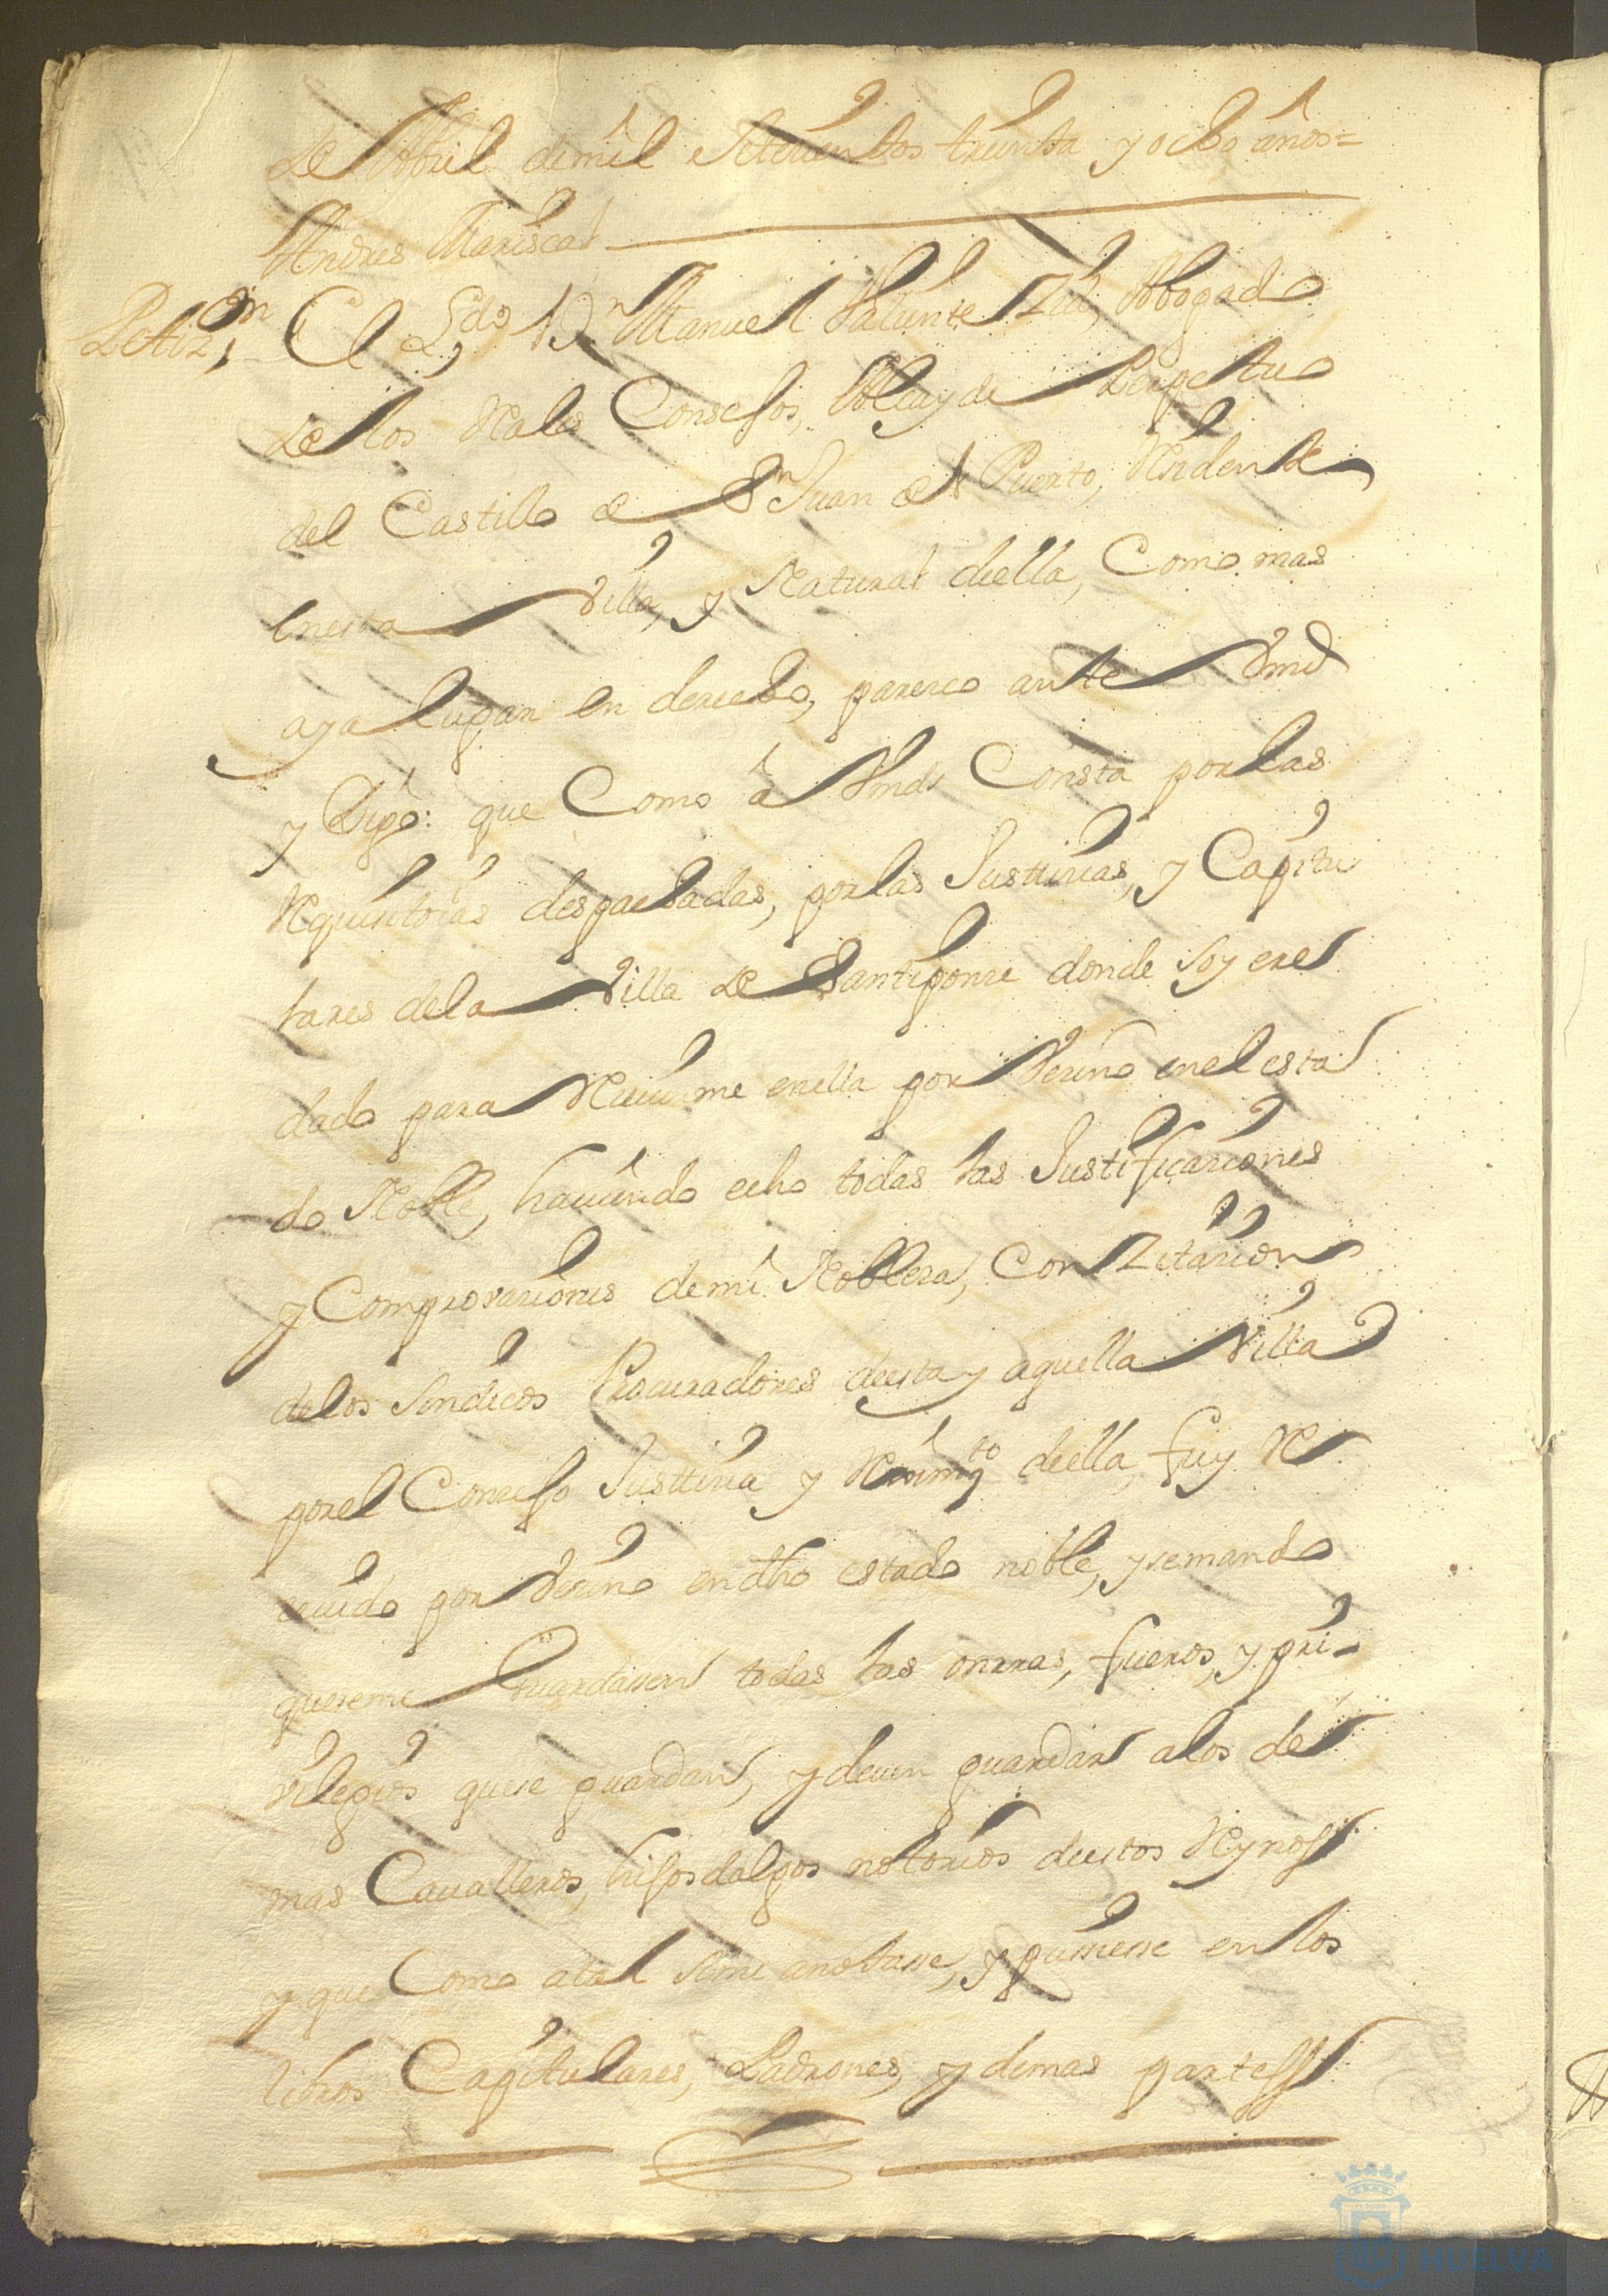 de Abril de mil setecientos treinta y ocho años=
Andres Mariscal
Petizn,, El Lzdo Dn Manuel Valiente Zid, Abogado
de los Rales Consejos, Alcayde Perpetuo
del Castillo de Sn Juan del Puerto, Residente
en esta Villa, y Natural de ella, Como mas
aya lugar en derecho, paresco ante Vmd
y Digo: que Como â Vmds Consta por las
Requisitorias despachadas, por las Justticias, y Capitu
lares de la Villa de Santiponse donde soy ered
dado para Recivirme en ella por Vezino en el esta
do Noble, haviendo echo todas las Justificaciones
y Comprovaciones de mi Nobleza, Con Zitacion
de los Sindicos Procuradores de esta y aquella Villa
por el Consejo Justticia y Rexim.to de ella, fuy Re
cevido por Vezino en dho estado noble, y se mando
que se me Guardasen todas las onrras, fueros, y pri-
vilegios que se guardan, y deven guardar a los de
mas Cavalleros, hijosdalgos notorios de estos Reynos
y que Como a tal se me anotasse, y pusiesse en los
libros Capitulares, Padrones, y demas partes
HUELVA